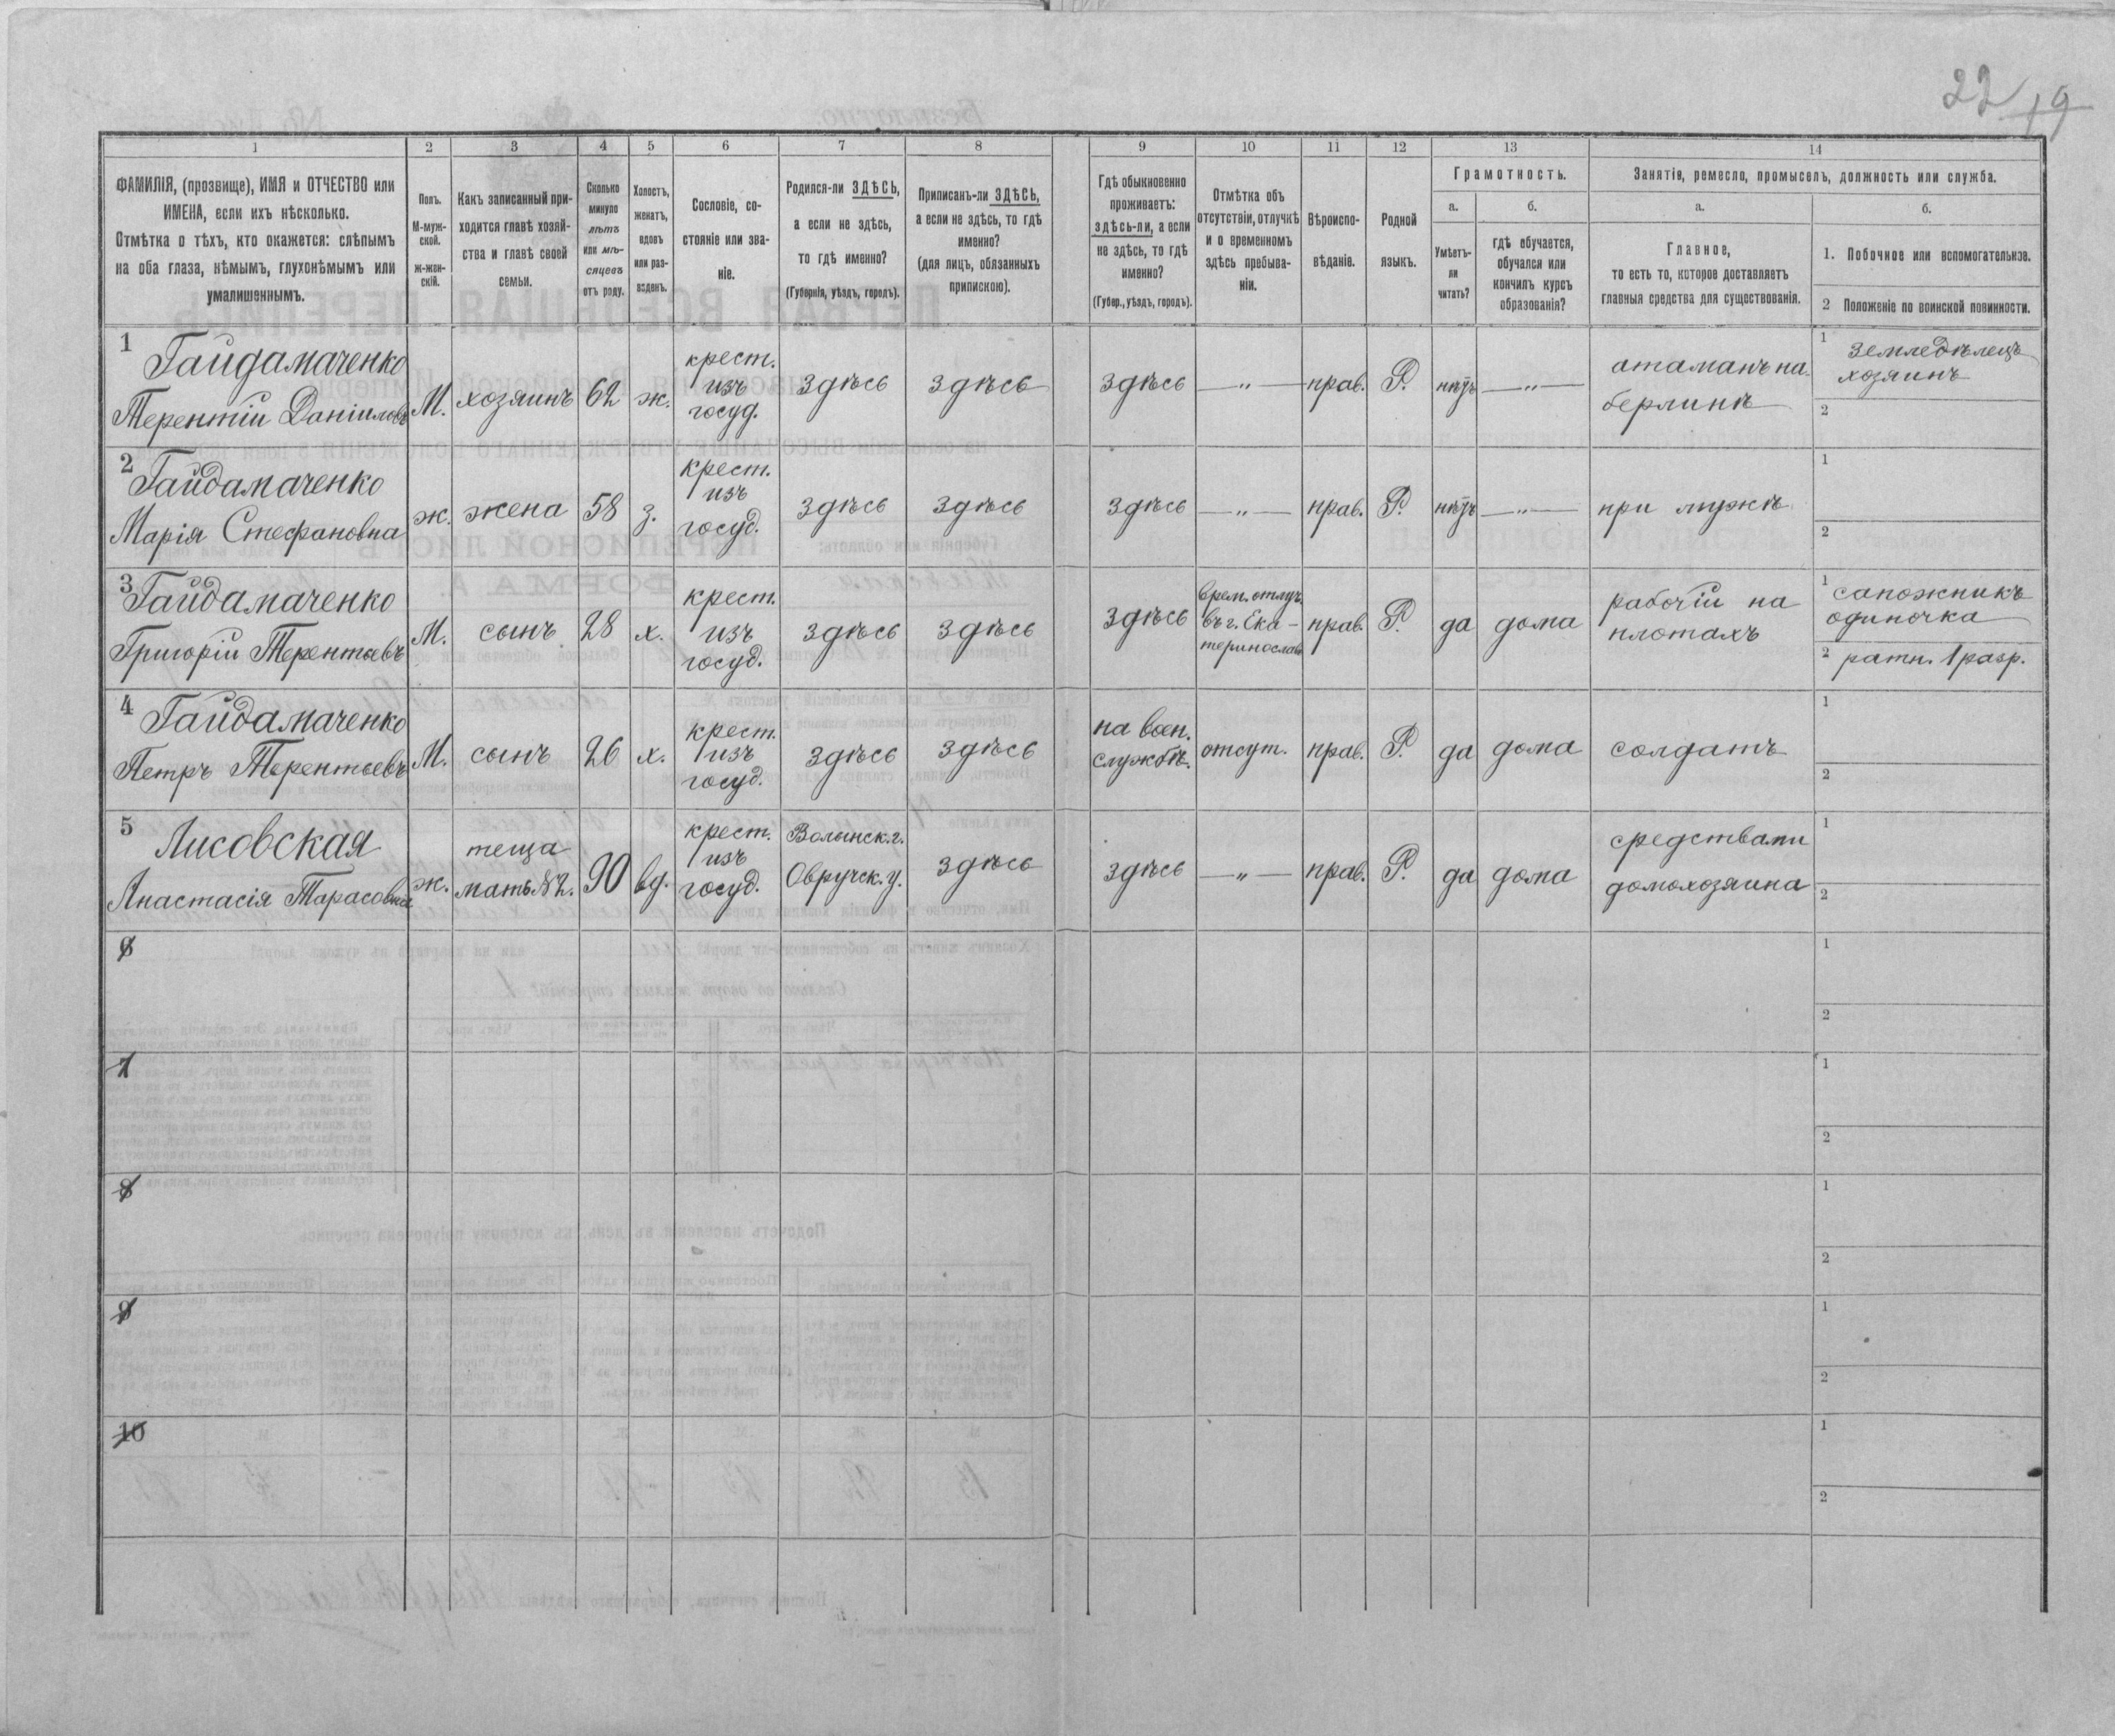 22/19
1 2 3 4 5 6 7 8 9 10 11 12 13 14
ФАМИЛІЯ, (прозвище), ИМЯ и ОТЧЕСТВО или
ИМЕНА, если ихъ нѣсколько.
Отмѣтка о тѣхъ, кто окажется: слѣпымъ
на оба глаза, нѣмымъ, глухонѣмымъ или
умалишеннымъ.
Полъ.
М-муж-
ской.
Ж-жен-
скій.
Какъ записанный при-
ходится главѣ хозяй-
ства и главѣ своей
семьи.
Сколько
минуло
лѣтъ
или мѣ-
сяцевъ
отъ роду.
Холостъ,
женатъ,
вдовъ
или раз-
веденъ.
Сословіе, со-
стояніе или зва-
ніе.
Родился-ли ЗДѢСЬ,
а если не здѣсь,
то гдѣ именно?
(Губернія, уѣздъ, городъ).
Приписанъ-ли ЗДѢСЬ,
а если не здѣсь, то гдѣ
именно?
(для лицъ, обязанныхъ
припискою).
Гдѣ обыкновенно
проживаетъ:
здѣсь-ли, а если
не здѣсь, то гдѣ
именно?
(Губер., уѣздъ, городъ).
Отмѣтка объ
отсутствіи, отлучкѣ
и о временномъ
здѣсь пребыва-
ніи.
Вѣроиспо-
вѣданіе.
Родной
языкъ.
Грамотность.
а.
Умѣетъ-
ли
читать?
б.
гдѣ обучается,
обучался или
кончилъ курсъ
образованія?
Занятіе, ремесло, промыселъ, должность или служба.
а.
Главное,
то есть то, которое доставляетъ
главныя средства для существованія.
б.
1. Побочное или вспомогательное.
2 Положеніе по воинской повинности.
1 Гайдамаченко
Терентій Даніиловъ
М.
хозяинъ
62
ж.
крест.
изъ
госуд.
здѣсь
здѣсь
здѣсь
—"—
прав.
Р.
нѣтъ
—"—
атаманъ на
берлинѣ
1 земледѣлецъ
хозяинъ
2
2 Гайдамаченко
Марія Стефановна
ж.
жена
58
з.
крест.
изъ
госуд.
здѣсь
здѣсь
здѣсь
—"—
прав.
Р.
нѣтъ
—"—
при мужѣ
1
2
3 Гайдамаченко
Григорій Терентьевъ
М.
сынъ
28
х.
крест.
изъ
госуд.
здѣсь
здѣсь
здѣсь
врем. отлуч.
въ г. Ека-
теринослав
прав.
Р.
да
дома
рабочій на
плотахъ
1 сапожникъ
одиночка
2 ратн. 1 разр.
4 Гайдамаченко
Петръ Терентьевъ
М.
сынъ
26
х.
крест.
изъ
госуд.
здѣсь
здѣсь
на воен.
службѣ.
отсут.
прав.
Р.
да
дома
солдатъ
1
2
5 Лисовская
Анастасія Тарасовна
ж.
теща
мать №2.
90
вд.
крест.
изъ
госуд.
Волынск. г.
Овручск. у.
здѣсь
здѣсь
—"—
прав.
Р.
да
дома
средствами
домохозяина
1
2
6
1
2
7
1
2
8
1
2
9
1
2
10
1
2